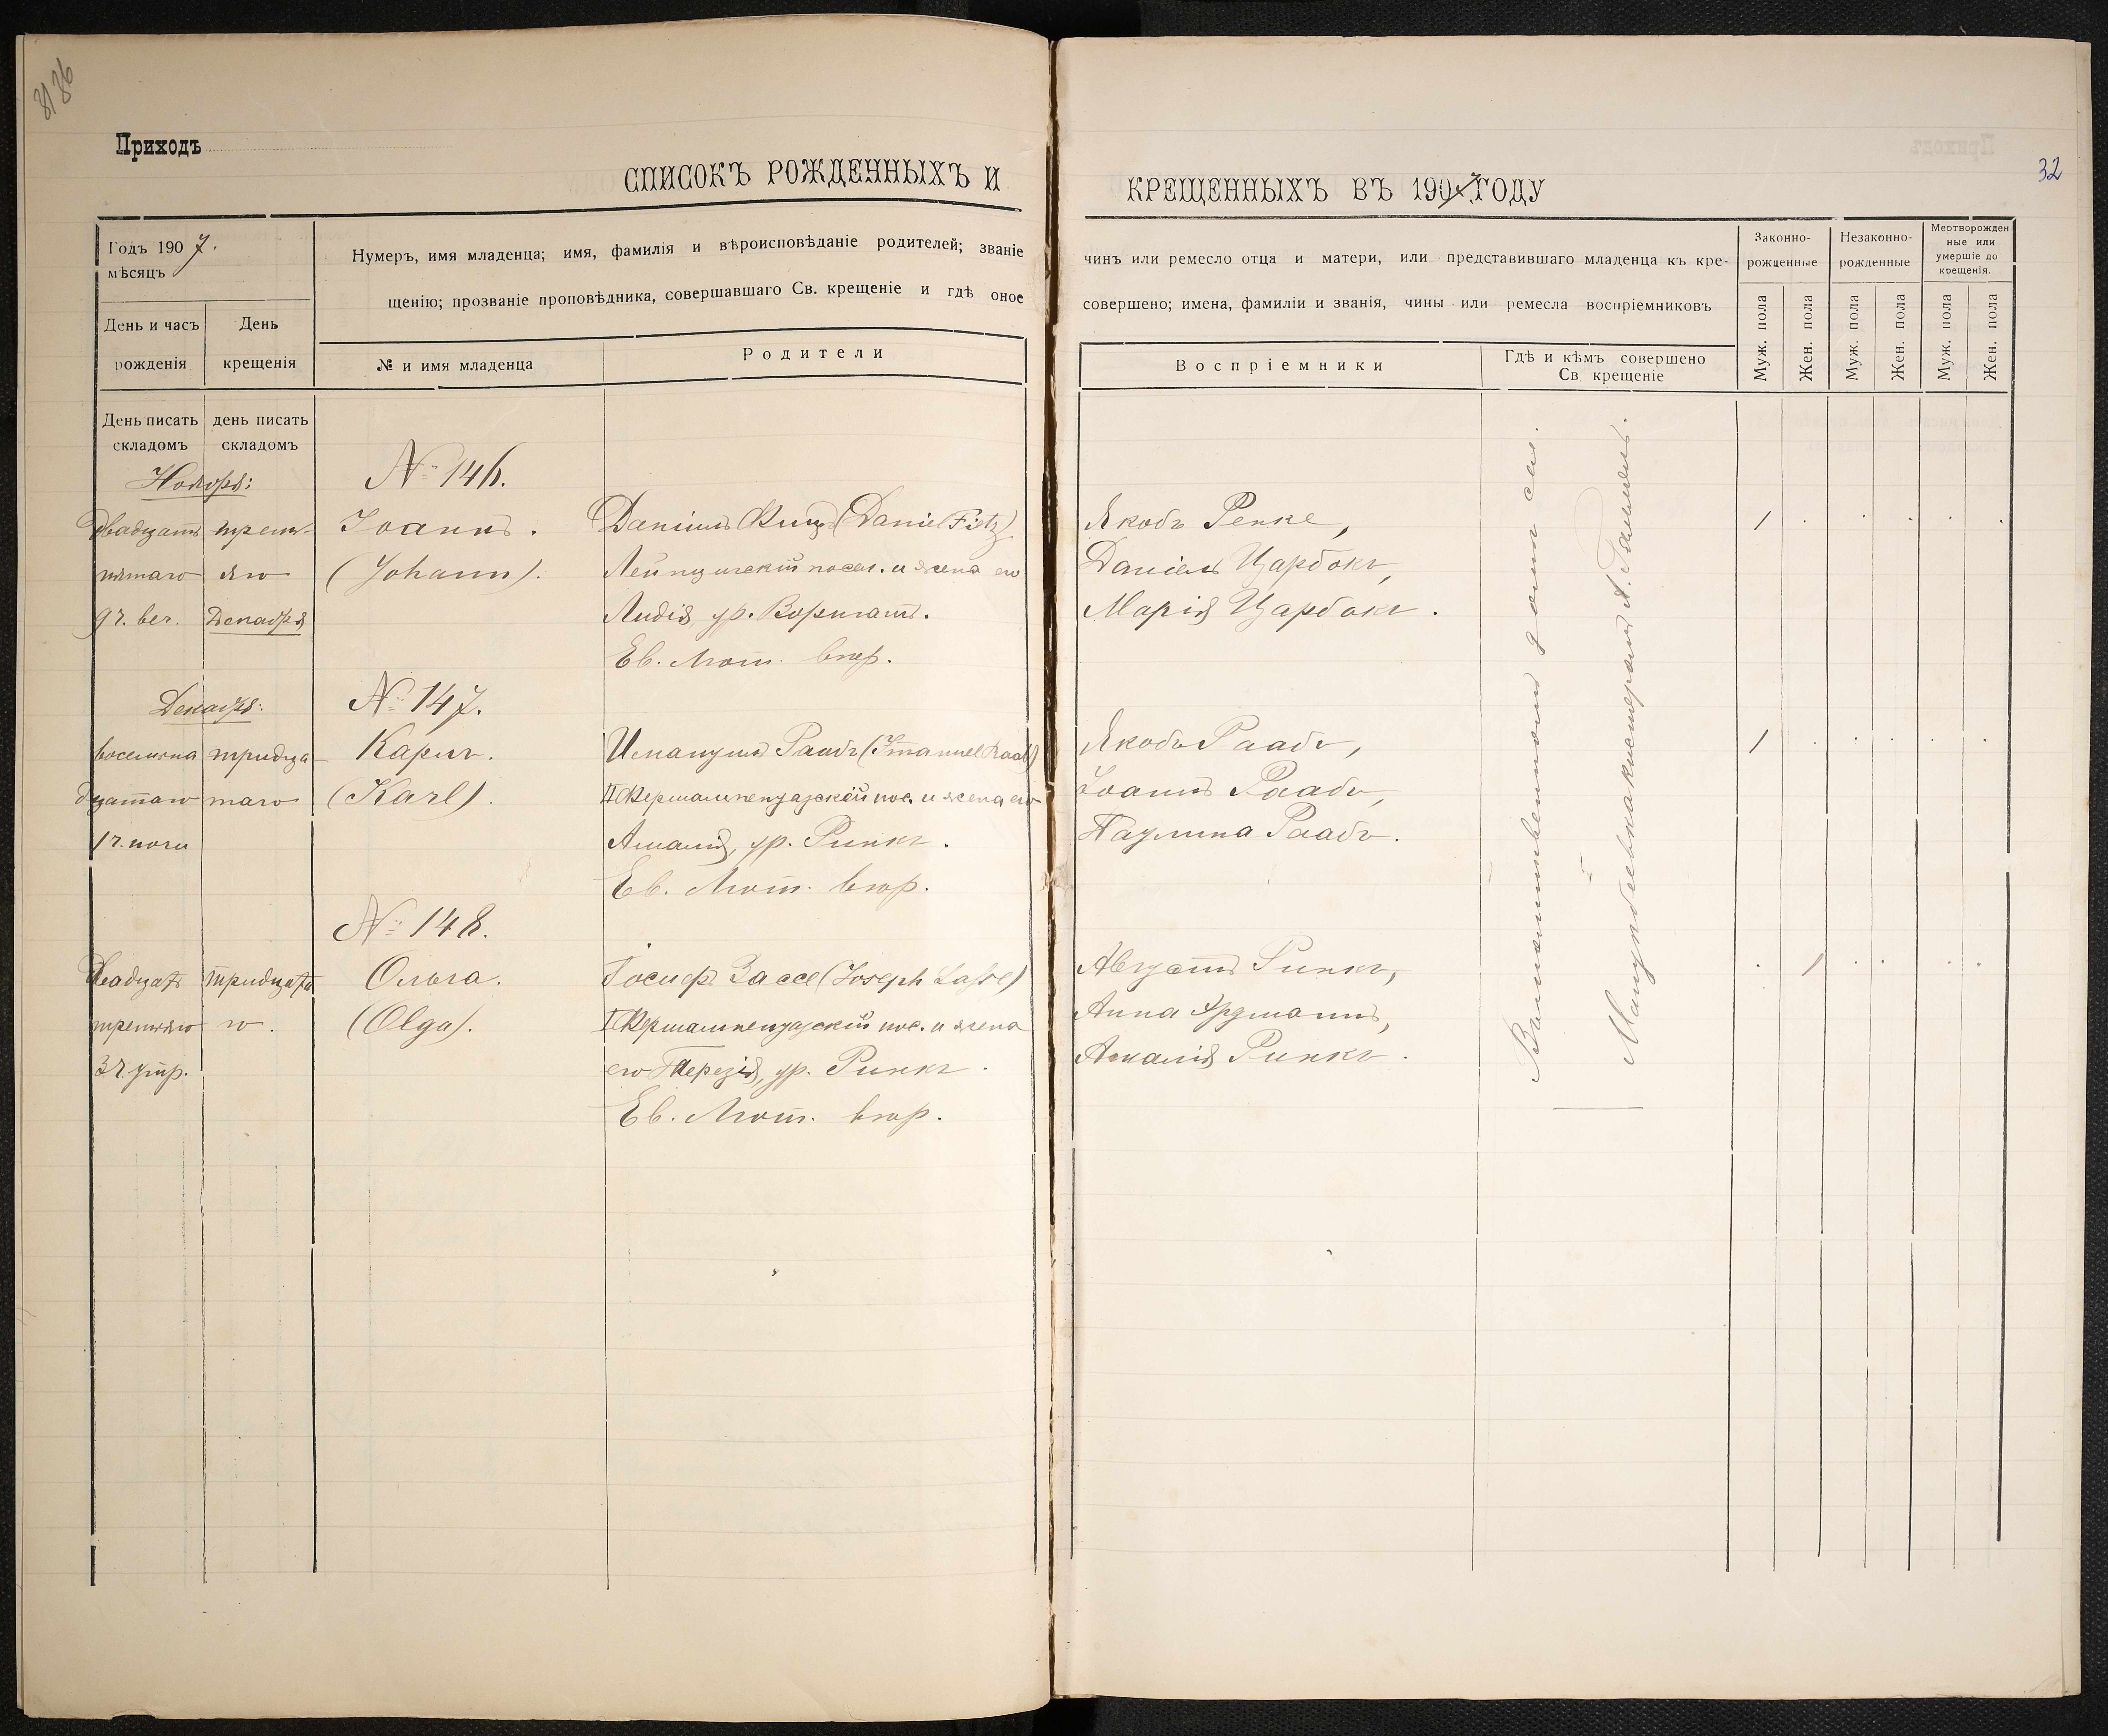 8186
Приходъ
СПИСОКЪ РОЖДЕННЫХЪ И
Годъ 1907.
мѣсяцъ
День и часъ рожденія
День крещенія
Нумеръ, имя младенца; имя, фамилія и вѣроисповѣданіе родителей; званіе
щенію; прозваніе проповѣдника, совершавшаго Св. крещеніе и гдѣ оное
№ и имя младенца
Родители
День писать складомъ
день писать складомъ
Ноября:
№ 146.
Двадцать трет-
Іоаннъ.
Даніилъ Фицъ (Daniel Fitz)
пятаго яго
(Johann).
Лейпцигскій посел. и жена его
9 ч. веч. Декабря
Лидія, ур. Ворматъ.
Ев. Лют. вѣр.
Декабря:
№ 147.
восемна тридца
Карлъ.
Имануилъ Раабъ (Immanuel Raab)
дцатаго таго
(Karl).
II Фершампенуазскій пос. и жена его
1 ч. ночи
Амалія, ур. Ринкъ.
Ев. Лют. вѣр.
№ 148.
Двадцать тридцата
Ольга.
Іосифъ Зассе (Joseph Sasse)
третьяго го.
(Olga).
I Фершампенуазскій пос. и жена
3 ч. утр.
его Терезія, ур. Ринкъ.
Ев. Лют. вѣр.
32
КРЕЩЕННЫХЪ ВЪ 1907 ГОДУ
чинъ или ремесло отца и матери, или представившаго младенца къ кре-
совершено; имена, фамиліи и званія, чины или ремесла воспріемниковъ
Воспріемники
Гдѣ и кѣмъ совершено
Св. крещеніе
Законно-рожденные
Незаконно-рожденные
Мертворожденные или умершіе до крещенія.
Муж. пола
Жен. пола
Муж. пола
Жен. пола
Муж. пола
Жен. пола
Якобъ Ренке,
Даніелъ Царбокъ,
Марія Царбокъ.
Якобъ Раабъ,
Іоаннъ Раабъ,
Паулина Раабъ.
Августъ Ринкъ,
Анна Эрдманнъ,
Амалія Ринкъ.
1
1
1